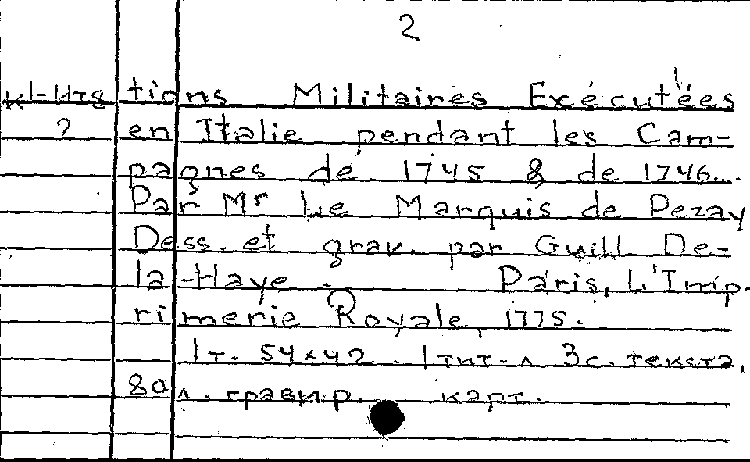 2
tions Militaires Exécutées
2 en Italie pendant les Cam-
pagnes de 1745 & de 1746...
Par Mr Le Marquis de Pezay
Dess. et grav. par Guill De-
la-Haye. Paris, L'Imp-
rimerie Royale, 1775.
1 т. 54×42. 1 тит. л 3 с. текста,
80 л. гравир. карт.